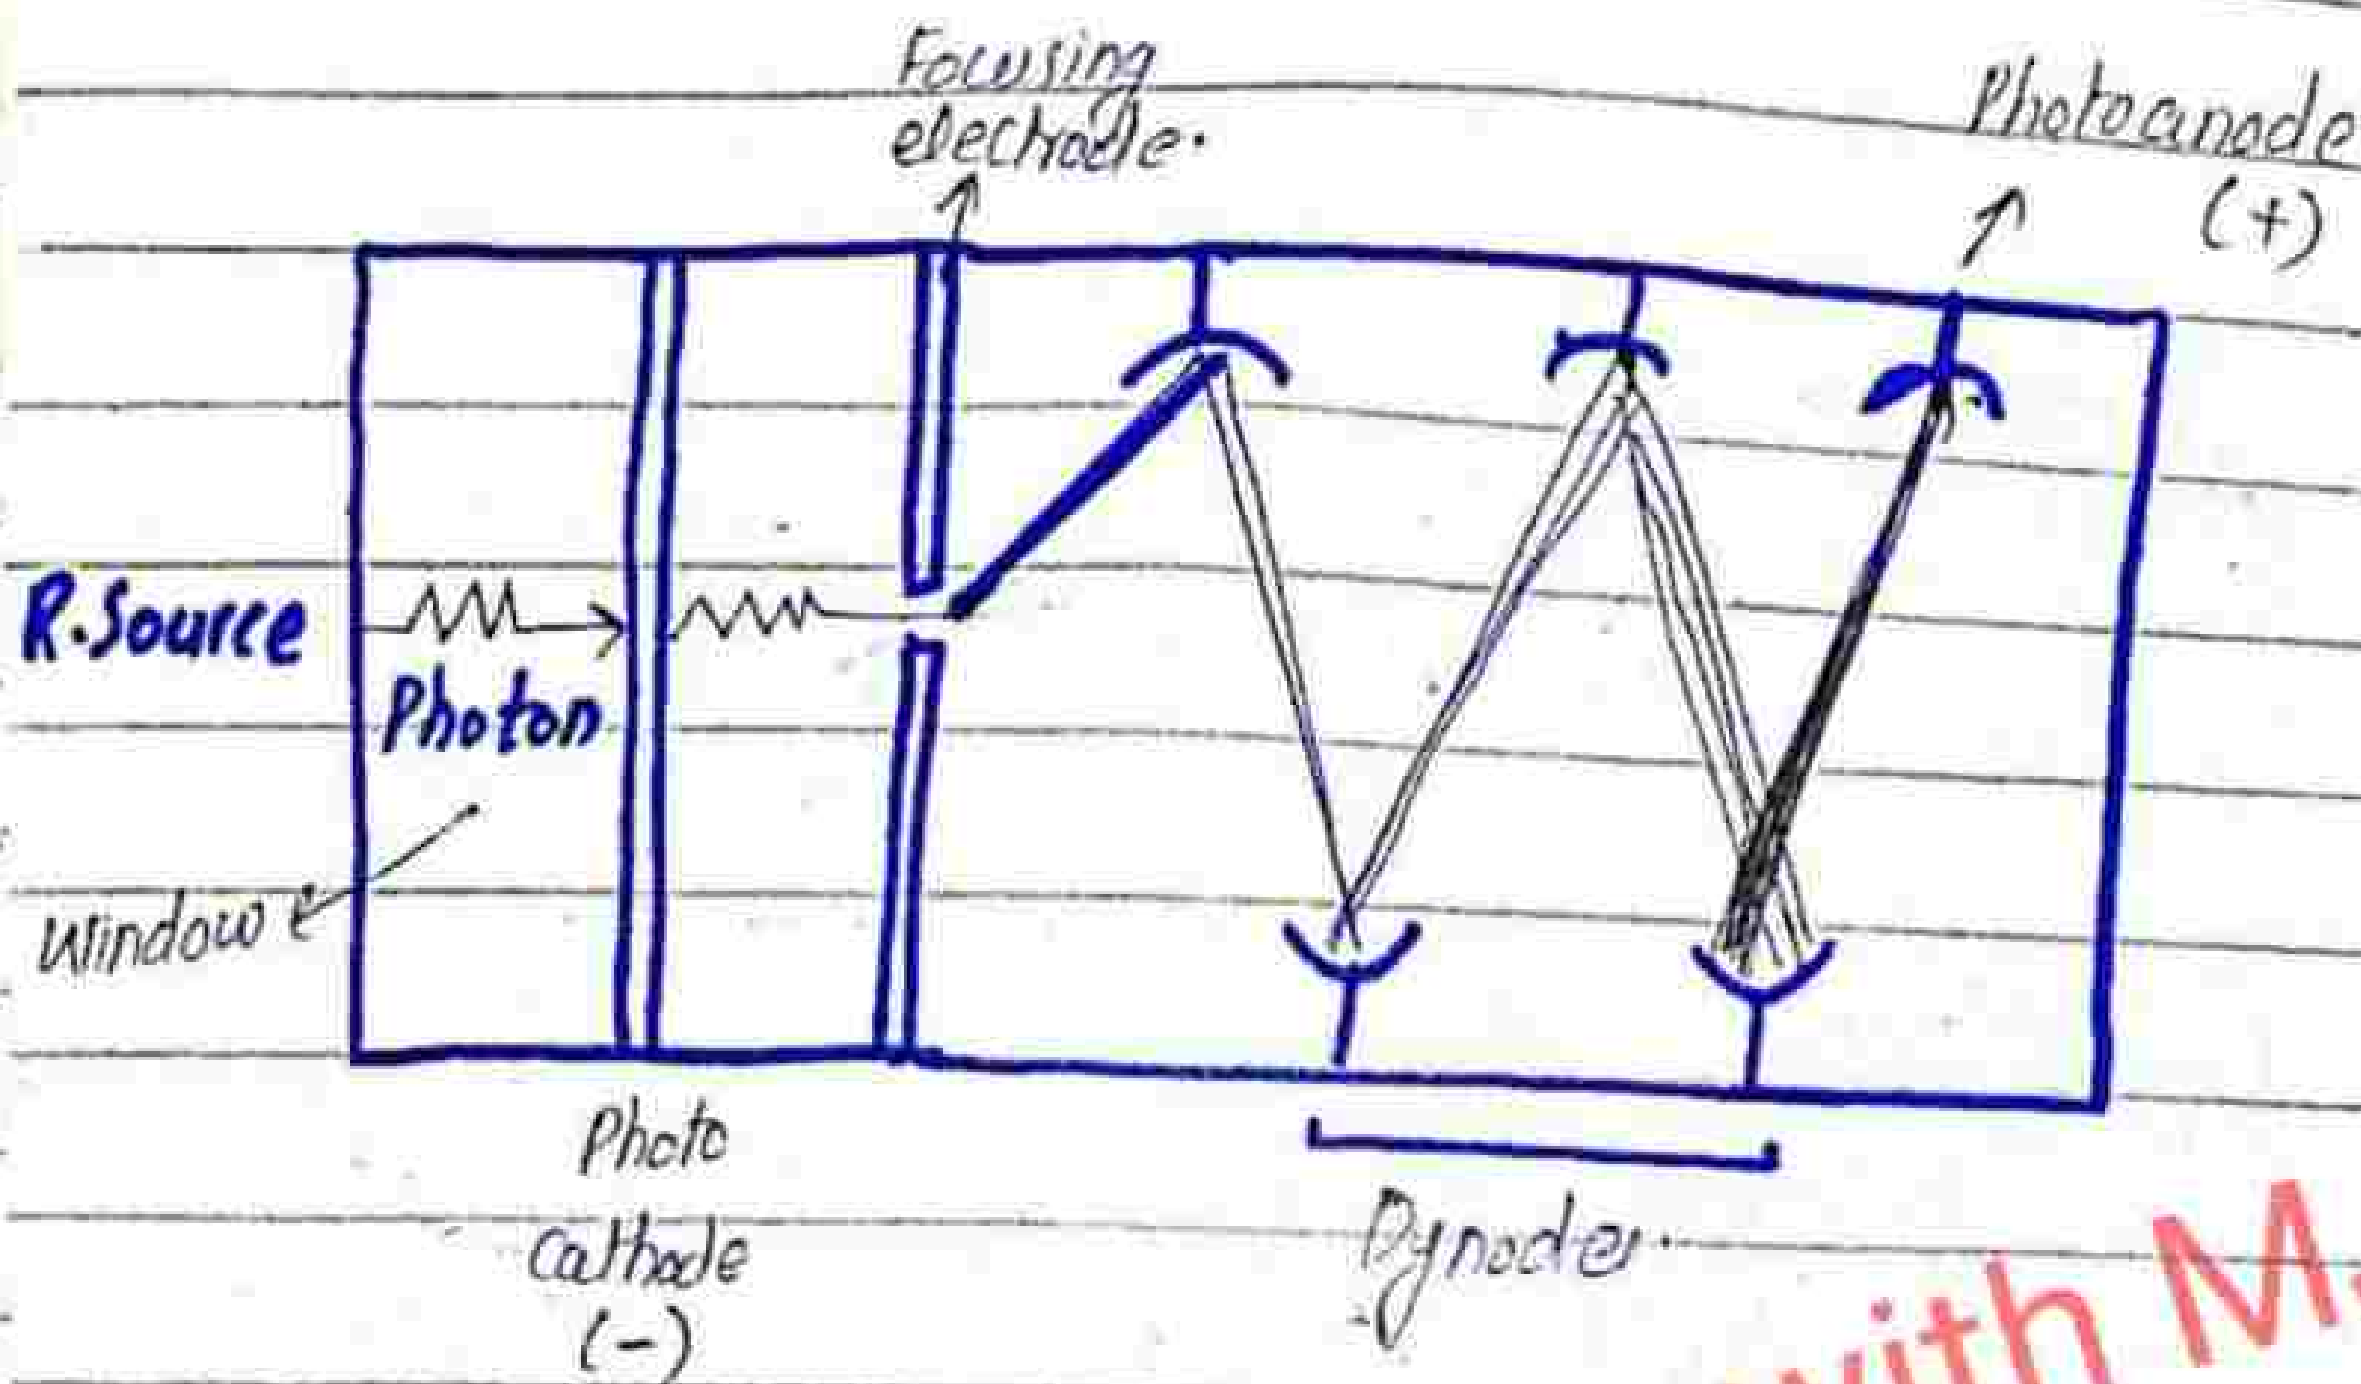 Focusing
electrode.
Photoanode
(+)
R.Source
Photon
Window
Photo
Cathode
(-)
Dynodes.
with M